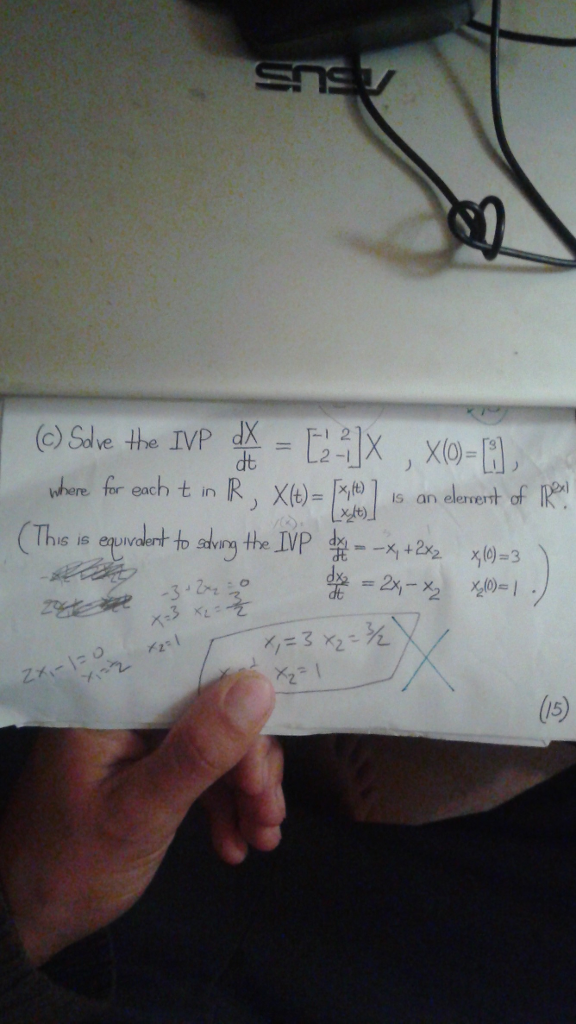 ASUS
(c) Solve the IVP dX/dt = [-1 2; 2 -1]X , X(0)=[3; 1],
where for each t in ℝ, X(t)=[x₁(t); x₂(t)] is an element of ℝ²ˣ¹.
(This is equivalent to solving the IVP dx₁/dt = -x₁+2x₂ x₁(0)=3
dx₂/dt = 2x₁-x₂ x₂(0)=1.)
-3+2x₂=0
x₁=3 x₂=3/2
x₂=1
2x₁-1=0
x₁=½
x₁=3 x₂=3/2
x₂=1
(15)